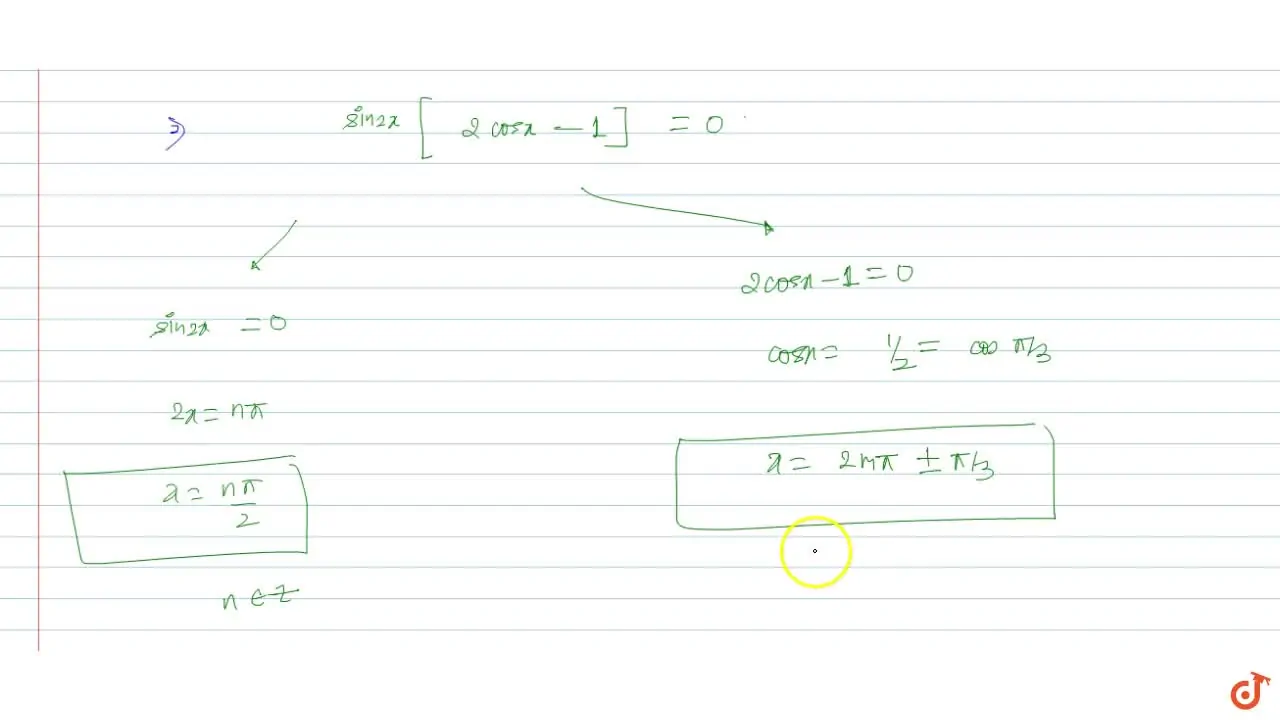 ⇒ sin2x [ 2 cosx − 1 ] = 0
2cosx − 1 = 0
sin2x = 0
cosx = 1/2 = cos π/3
2x = nπ
x = 2mπ ± π/3
x = nπ/2
n ∈ Z